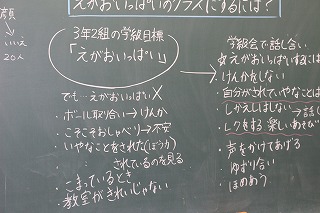 えがおいっぱいのクラスにするには?
顔
いいえ
20人
3年2組の学級目標
「えがおいっぱい」
でも…えがおいっぱい×
・ボール取り合い→けんか
・こそこそおしゃべり→不安
・いやなことをされた(ぼう力)
・ されているのを見る
・こまっているとき
教室がきれいじゃない
学級会で話し合い
☆えがおいっぱいにするには
・けんかをしない
・自分がされていやなことは
・しかえしはしない→話し
・レクをする 楽しいあそび
・声をかけてあげる
・ゆずり合い
・ほめあう